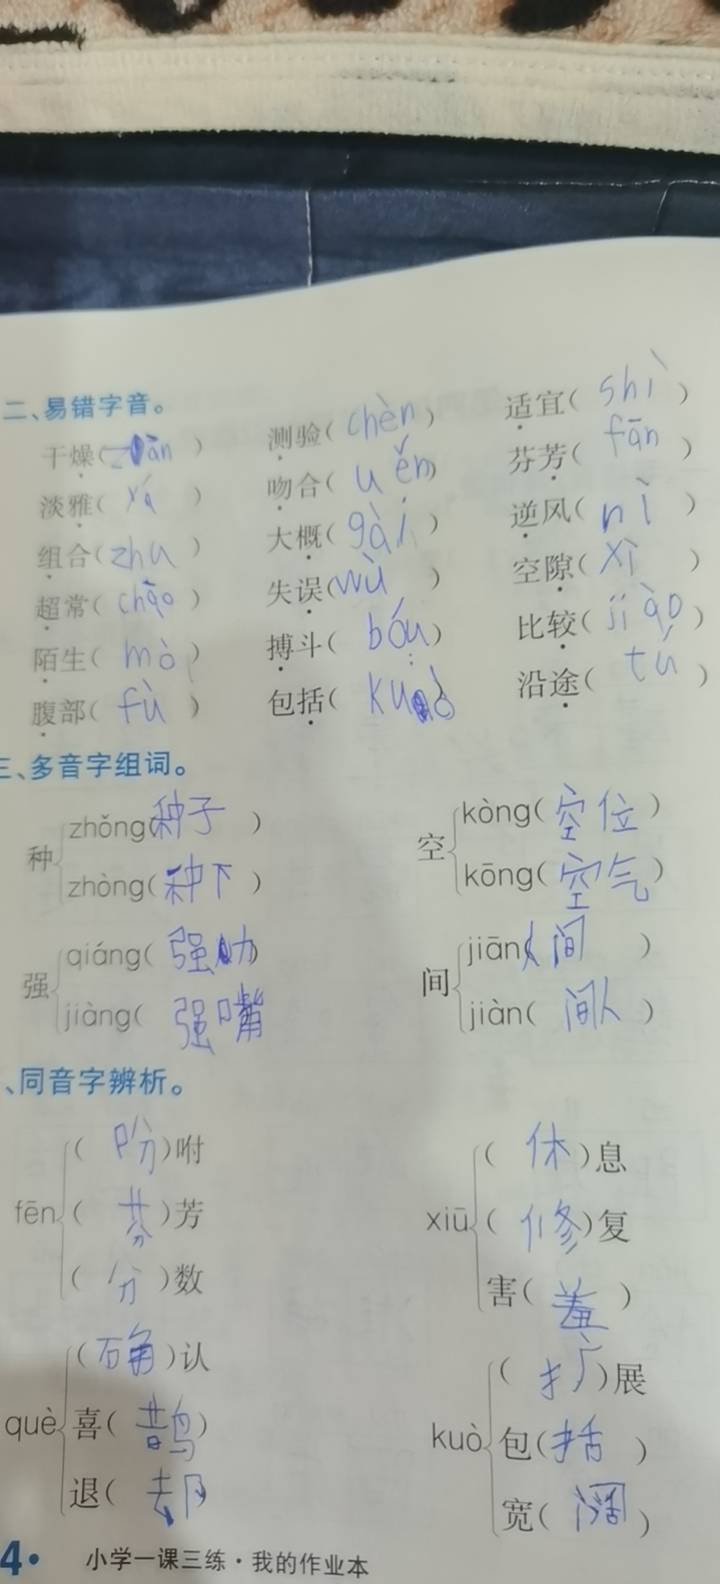 二、易错字音。
干燥( ) 测验(chèn) 适宜(shì)
淡雅(yá) 吻合(uěn) 芬芳(fān)
组合(zhu) 大概(gài) 逆风(nì)
超常(chāo) 失误(wù) 空隙(xì)
陌生(mò) 搏斗(bóu) 比较(jiào)
腹部(fù) 包括(kuò) 沿途(tú)
三、多音字组词。
种 zhǒng(种子) 空 kòng(空位)
zhòng(种下) kōng(空气)
强 qiáng(强助) 间 jiān(人间)
jiàng(强嘴) jiàn(间人)
、同音字辨析。
fēn (吩)咐 xiū (休)息
(芬)芳 (修)复
(分)数 害(羞)
què (确)认 kuò (扩)展
喜(鹊) 包(括)
退(却) 宽(阔)
4• 小学一课三练·我的作业本